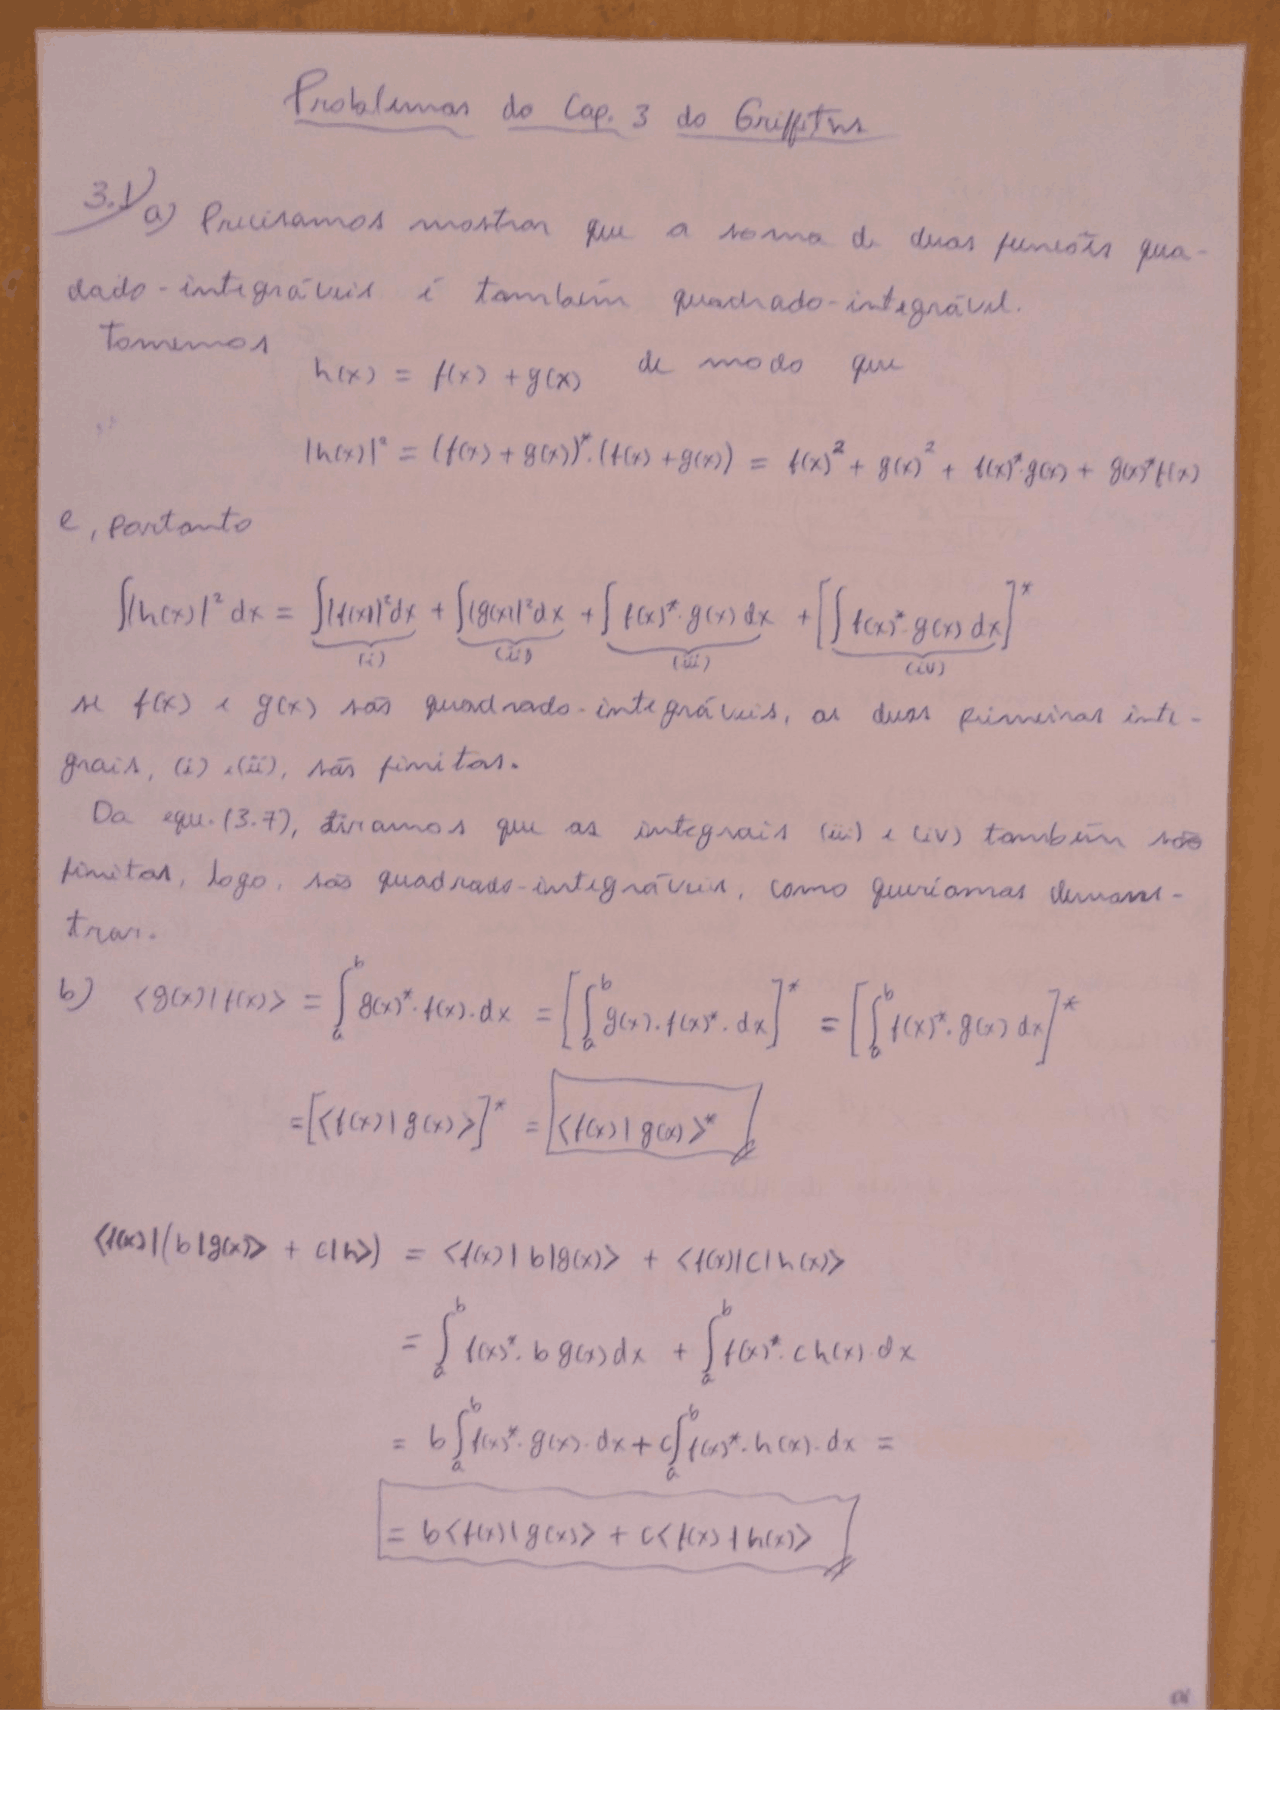 Problemas do Cap. 3 do Griffiths
3.1) a) Precisamos mostrar que a soma de duas funções qua-
dado-integráveis é também quadrado-integrável.
Tomemos
h(x) = f(x) + g(x) de modo que
|h(x)|² = (f(x) + g(x))*.(f(x) + g(x)) = f(x)² + g(x)² + f(x)*.g(x) + g(x)*f(x)
e, portanto
∫|h(x)|² dx = ∫|f(x)|²dx + ∫|g(x)|²dx + ∫ f(x)*.g(x) dx + [∫ f(x)*.g(x) dx]*
(i) (ii) (iii) (iv)
se f(x) e g(x) são quadrado-integráveis, as duas primeiras inte-
grais, (i) e (ii), são finitas.
Da equ. (3.7), tiramos que as integrais (iii) e (iv) também são
finitas, logo, são quadrado-integráveis, como queríamos demons-
trar.
b) ⟨g(x)|f(x)⟩ = ∫ₐᵇ g(x)*.f(x).dx = [∫ₐᵇ g(x).f(x)*.dx]* = [∫ₐᵇ f(x)*.g(x) dx]*
= [⟨f(x)|g(x)⟩]* = ⟨f(x)|g(x)⟩*
⟨f(x)|(b|g(x)⟩ + c|h⟩) = ⟨f(x)|b|g(x)⟩ + ⟨f(x)|c|h(x)⟩
= ∫ₐᵇ f(x)*.b g(x) dx + ∫ₐᵇ f(x)*.c h(x).dx
= b∫ₐᵇ f(x)*.g(x).dx + c∫ₐᵇ f(x)*.h(x).dx =
= b⟨f(x)|g(x)⟩ + c⟨f(x)|h(x)⟩